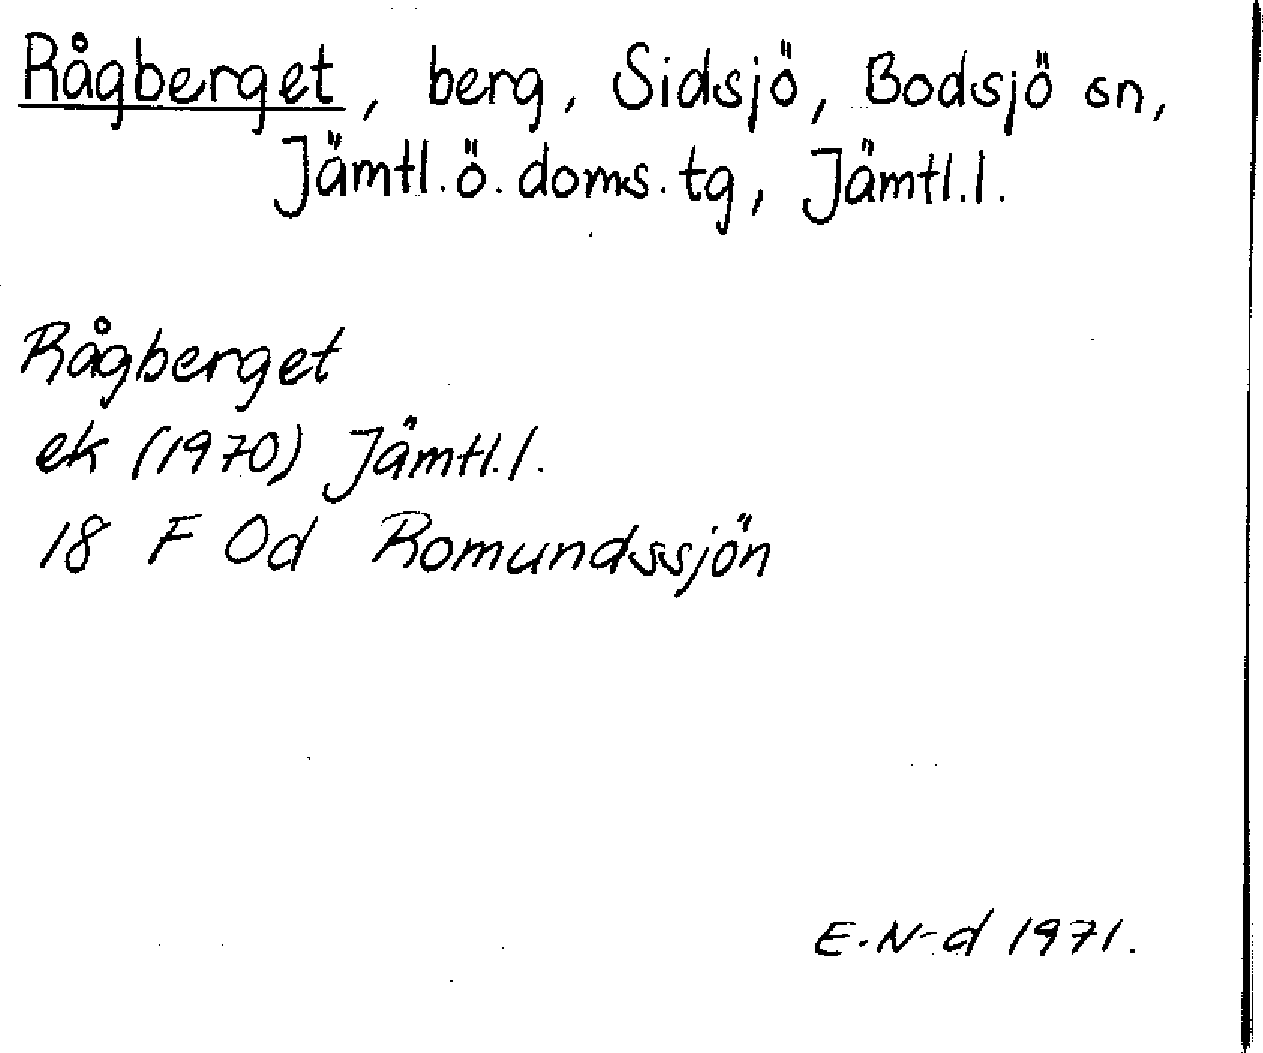 Rågberget, berg, Sidsjö, Bodsjö sn,
Jämtl.ö.doms.tg, Jämtl.l.
Rågberget
ek (1970) Jämtl.l.
18 F Od Romundssjön
E.N-d 1971.